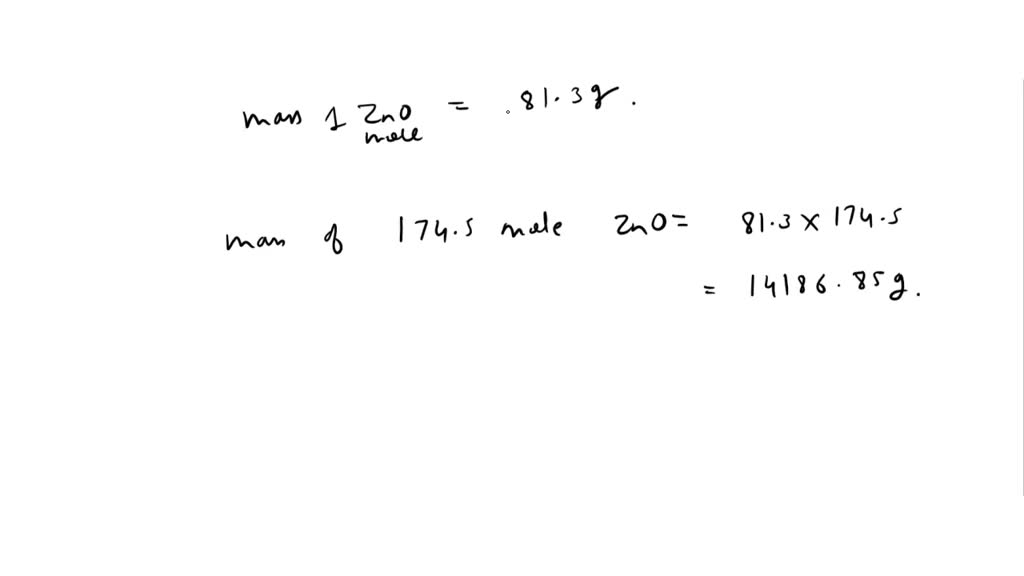 mass 1 ZnO = 81.3 g.
mole
mass of 174.5 mole ZnO = 81.3 x 174.5
= 14186.85g.